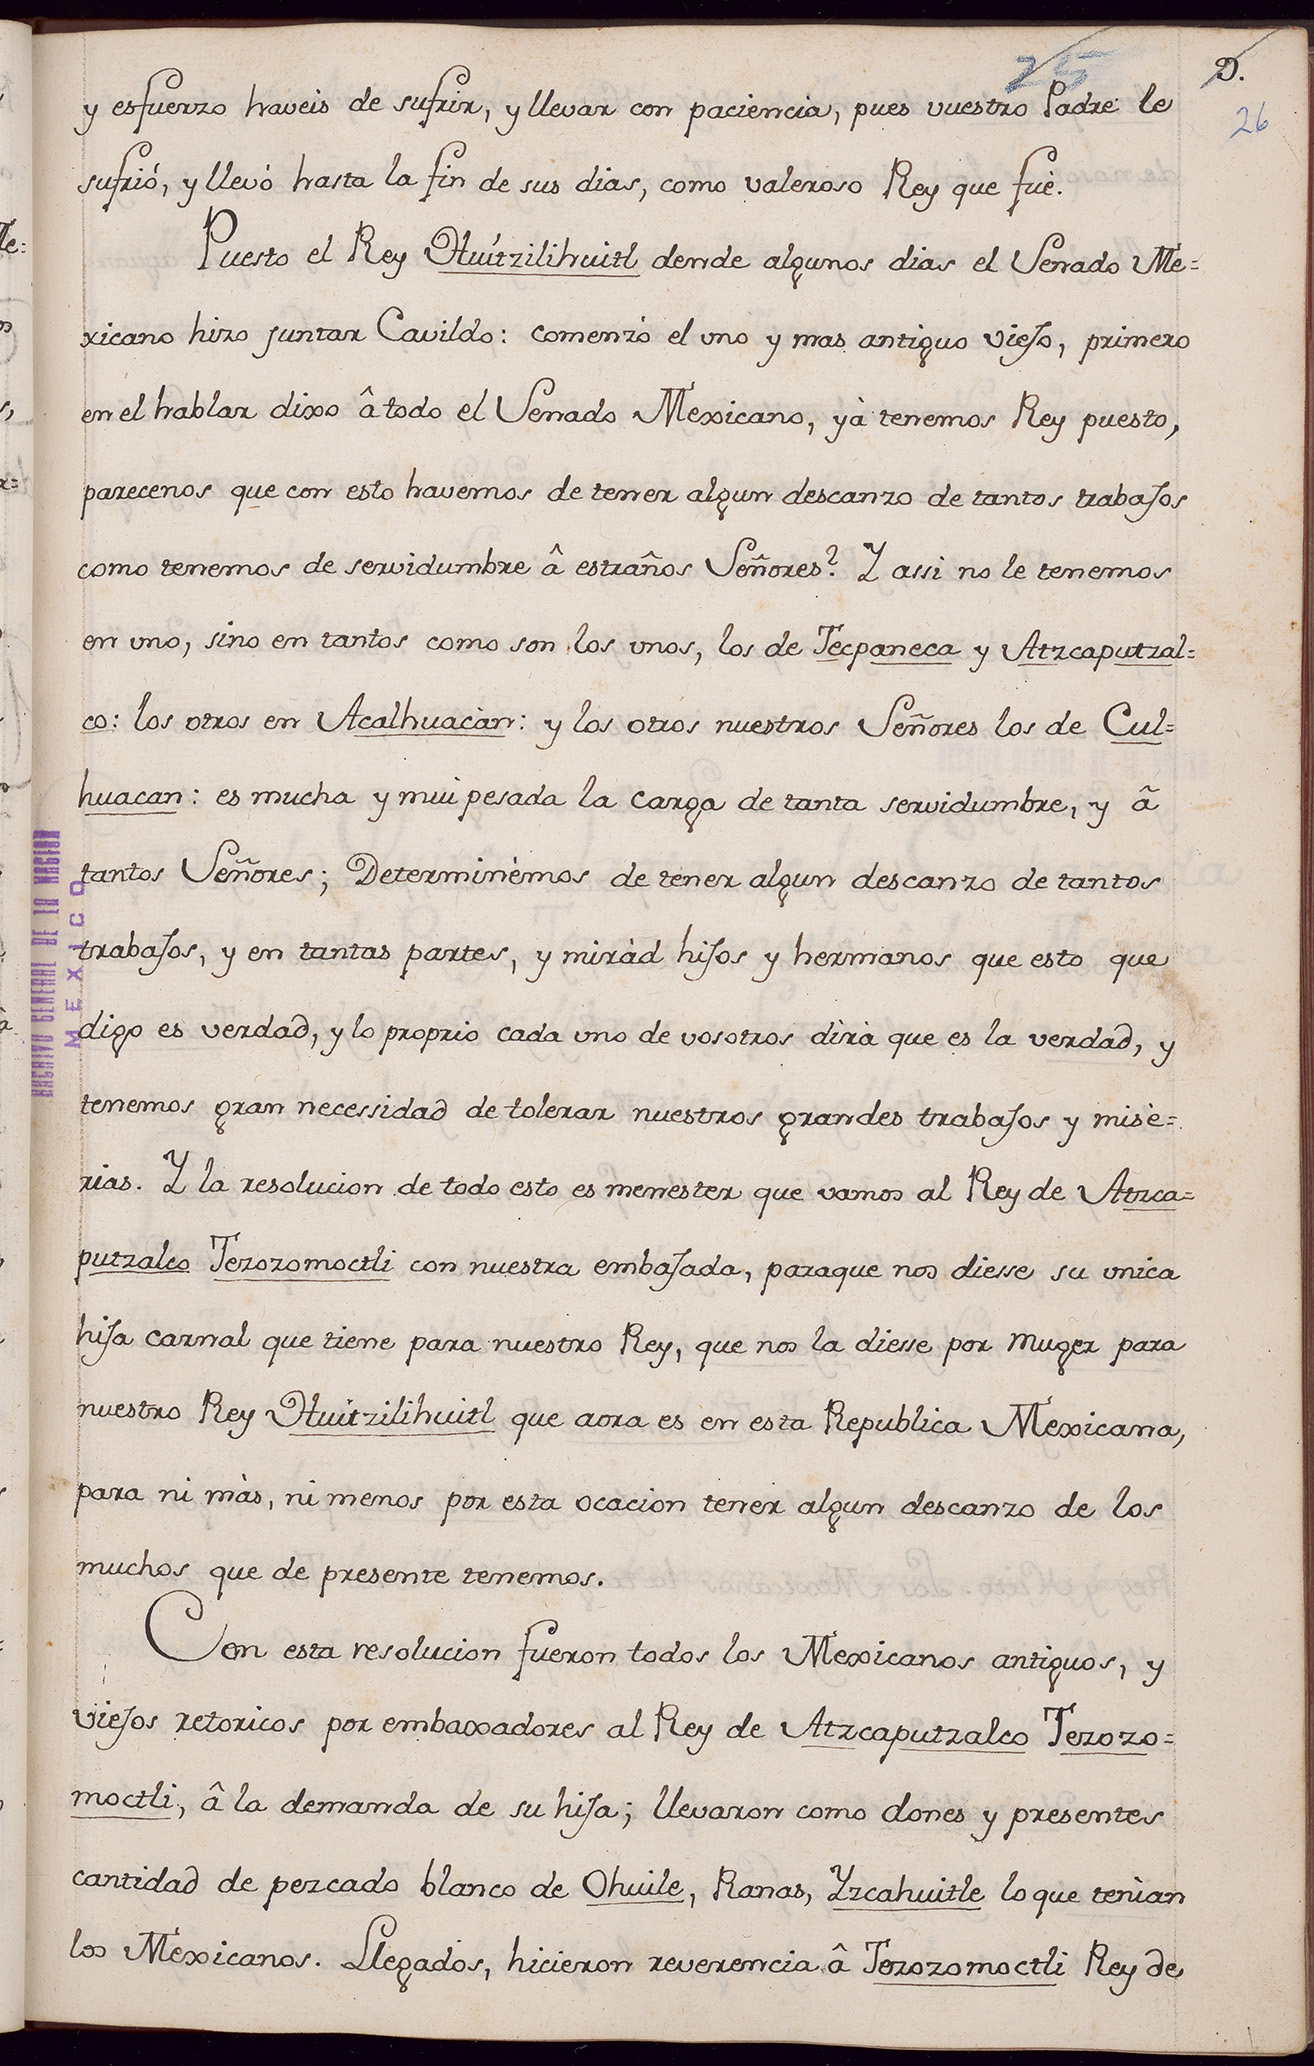 25
D.
26
y esfuerzo haveis de sufrir, y llevar con paciencia, pues vuestro Padre le
sufriò, y llevò hasta la fin de sus dias, como valeroso Rey que fuè.
Puesto el Rey Huitzilihuitl dende algunos dias el Senado Me=
xicano hizo juntar Cavildo: comenzò el uno y mas antiguo viejo, primero
en el hablar dixo â todo el Senado Mexicano, yà tenemos Rey puesto,
parecenos que con esto havemos de tener algun descanzo de tantos trabajos
como tenemos de servidumbre â estraños Señores? Y assi no le tenemos
en uno, sino en tantos como son los unos, los de Tecpaneca y Atzcaputzal=
co: los otros en Acalhuacàn: y los otros nuestros Señores los de Cul=
huacan: es mucha y mui pesada la carga de tanta servidumbre, y â
tantos Señores; Determinèmos de tener algun descanzo de tantos
trabajos, y en tantas partes, y miràd hijos y hermanos que esto que
digo es verdad, y lo proprio cada uno de vosotros dirà que es la verdad, y
tenemos gran necessidad de tolerar nuestros grandes trabajos y misè=
rias. Y la resolucion de todo esto es menester que vamos al Rey de Atzca=
putzalco Tezozomoctli con nuestra embajada, paraque nos diesse su unica
hija carnal que tiene para nuestro Rey, que nos la diesse por muger para
nuestro Rey Huitzilihuitl que aora es en esta Republica Mexicana,
para ni màs, ni menos por esta ocacion tener algun descanzo de los
muchos que de presente tenemos.
Con esta resolucion fueron todos los Mexicanos antiguos, y
viejos retoricos por embaxadores al Rey de Atzcaputzalco Tezozo=
moctli, â la demanda de su hija; llevaron como dones y presentes
cantidad de pezcado blanco de Ohuile, Ranas, Yzcahuitle lo que tenìan
los Mexicanos. Llegados, hicieron reverencia â Tezozomoctli Rey de
ARCHIVO GENERAL DE LA NACION
MEXICO